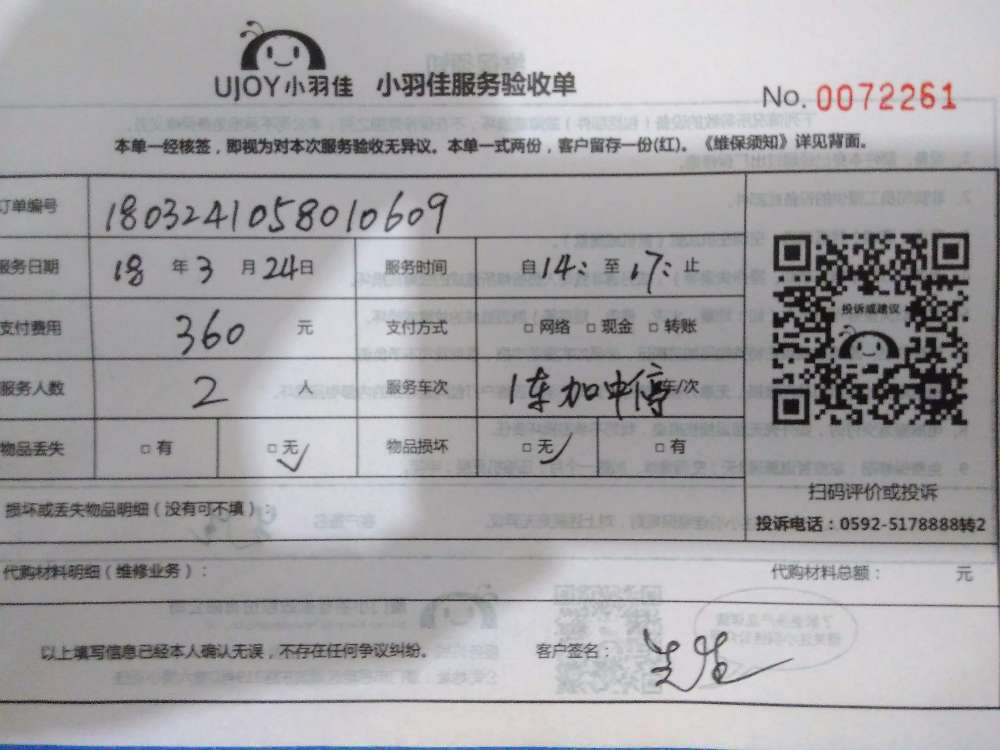 UJOY小羽佳 小羽佳服务验收单
No. 0072261
本单一经核签，即视为对本次服务验收无异议。本单一式两份，客户留存一份(红)。《维保须知》详见背面。
订单编号 1803241058010609
服务日期 18 年 3 月 24 日 服务时间 自 14: 至 17: 止
支付费用 360 元 支付方式 □网络 □现金 □转账
服务人数 2 人 服务车次 1车加中停 车/次
物品丢失 □有 □无 ✓ 物品损坏 □无 ✓ □有
投诉或建议
扫码评价或投诉
投诉电话：0592-5178888转2
损坏或丢失物品明细（没有可不填）：
代购材料明细（维修业务）： 代购材料总额： 元
以上填写信息已经本人确认无误，不存在任何争议纠纷。 客户签名：